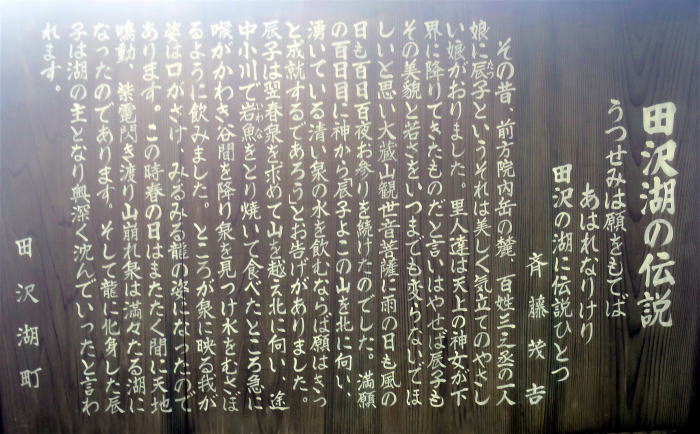 田沢湖の伝説
うつせみは願をもてば
あはれなりけり
田沢の湖に伝説ひとつ
斉藤茂吉
その昔、前方院内岳の麓、百姓三之丞の一人
娘に辰子というそれは美しく気立てのやさし
い娘がおりました。里人達は天上の神女が下
界に降りてきたものだと言いはやせば辰子も
その美貌と若さをいつまでも変らないでほ
しいと思い大蔵山観世音菩薩に雨の日も風の
日も百日百夜お参りを続けたのでした。満願
の百日目に神から辰子よこの山を北に向い、
湧いている清い泉の水を飲むならば願はきっ
と成就するであろう」とお告げがありました。
辰子は翌春泉を求めて山を越え北に向い、途
中小川で岩魚をとり焼いて食べたところ急に
喉がかわき谷間を降り泉を見つけ水をむさぼ
るように飲みました。ところが泉に映る我が
姿は口がさけ、みるみる龍の姿になったので
あります。この時春の日はまたたく間に天地
鳴動、紫電閃き渡り山崩れ泉は満々たる湖に
なったのであります。そして龍に化身した辰
子は湖の主となり奥深く沈んでいったと言わ
れます。
田沢湖町